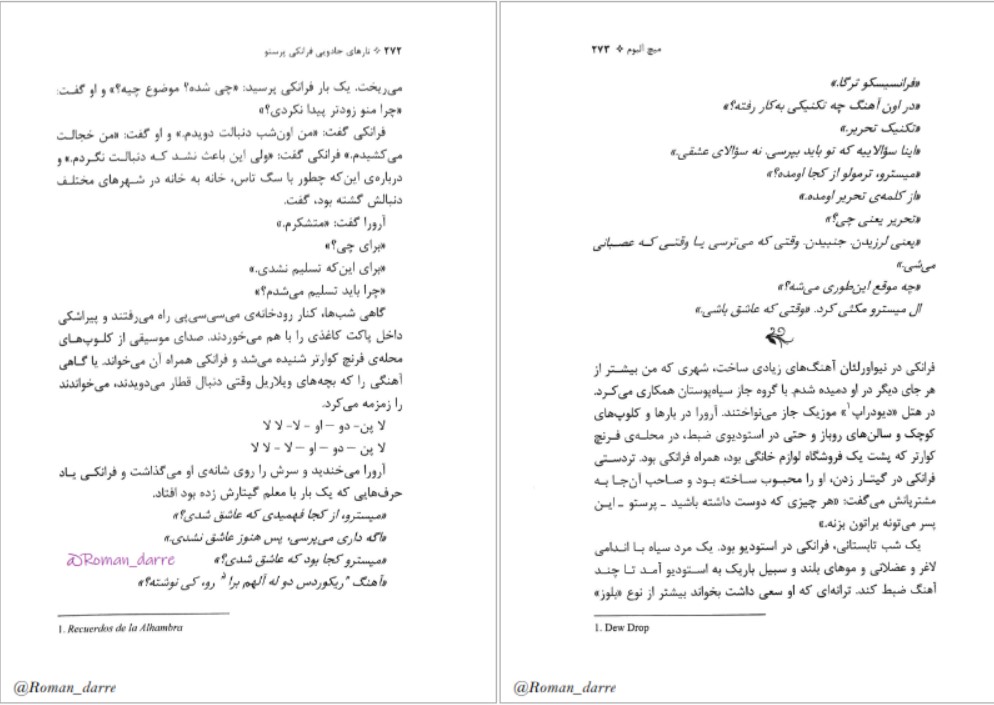 ۲۷۲ ❖ تارهای جادویی فرانکی پرستو
می‌ریخت. یک بار فرانکی پرسید: «چی شده؟ موضوع چیه؟» و او گفت:
«چرا منو زودتر پیدا نکردی؟»
فرانکی گفت: «من اون‌شب دنبالت دویدم.» و او گفت: «من خجالت
می‌کشیدم.» فرانکی گفت: «ولی این باعث نشد که دنبالت نگردم.» و
درباره‌ی این‌که چطور با سگ تاس، خانه به خانه در شهرهای مختلف
دنبالش گشته بود، گفت.
آرورا گفت: «متشکرم.»
«برای چی؟»
«برای این‌که تسلیم نشدی.»
«چرا باید تسلیم می‌شدم؟»
گاهی شب‌ها، کنار رودخانه‌ی می‌سی‌سی‌پی راه می‌رفتند و پیراشکی
داخل پاکت کاغذی را با هم می‌خوردند. صدای موسیقی از کلوپ‌های
محله‌ی فرنچ کوارتر شنیده می‌شد و فرانکی همراه آن می‌خواند. یا گاهی
آهنگی را که بچه‌های ویلاریل وقتی دنبال قطار می‌دویدند، می‌خواندند
را زمزمه می‌کرد.
لا پن- دو – او - لا- لا لا
لا پن – دو – او – لا - لا لا
آرورا می‌خندید و سرش را روی شانه‌ی او می‌گذاشت و فرانکی یاد
حرف‌هایی که یک بار با معلم گیتارش زده بود افتاد.
«میسترو، از کجا فهمیدی که عاشق شدی؟»
«اگه داری می‌پرسی، پس هنوز عاشق نشدی.»
«میسترو کجا بود که عاشق شدی؟»
@Roman_darre
«آهنگ "ریکوردس دو له آلهم برا" رو، کی نوشته؟»
1. Recuerdos de la Alhambra
@Roman_darre
میچ آلبوم ❖ ۲۷۳
«فرانسیسکو ترگا.»
«در اون آهنگ چه تکنیکی به‌کار رفته؟»
«تکنیک تحریر.»
«اینا سؤالاییه که تو باید بپرسی. نه سؤالای عشقی.»
«میسترو، ترمولو از کجا اومده؟»
«از کلمه‌ی تحریر اومده.»
«تحریر یعنی چی؟»
«یعنی لرزیدن. جنبیدن. وقتی که می‌ترسی یا وقتی که عصبانی
می‌شی.»
«چه موقع این‌طوری می‌شه؟»
ال میسترو مکثی کرد. «وقتی که عاشق باشی.»
فرانکی در نیواورلئان آهنگ‌های زیادی ساخت، شهری که من بیشتر از
هر جای دیگر در او دمیده شدم. با گروه جاز سیاه‌پوستان همکاری می‌کرد.
در هتل «دیودراپ۱» موزیک جاز می‌نواختند. آرورا در بارها و کلوپ‌های
کوچک و سالن‌های روباز و حتی در استودیوی ضبط، در محله‌ی فرنچ
کوارتر که پشت یک فروشگاه لوازم خانگی بود، همراه فرانکی بود. تردستی
فرانکی در گیتار زدن، او را محبوب ساخته بود و صاحب آن‌جا به
مشتریانش می‌گفت: «هر چیزی که دوست داشته باشید ـ پرستو ـ این
پسر می‌تونه براتون بزنه.»
یک شب تابستانی، فرانکی در استودیو بود. یک مرد سیاه با اندامی
لاغر و عضلانی و موهای بلند و سبیل باریک به استودیو آمد تا چند
آهنگ ضبط کند. ترانه‌ای که او سعی داشت بخواند بیشتر از نوع «بلوز»
1. Dew Drop
@Roman_darre